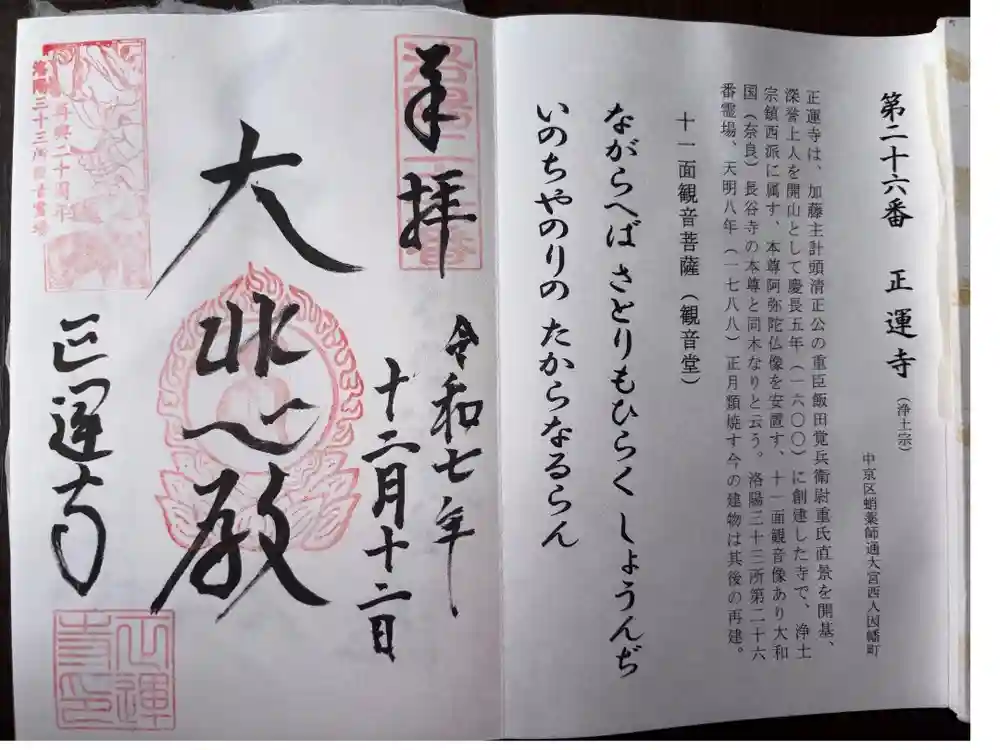 第二十六番 正運寺（浄土宗）
中京区蛸薬師通大宮西入因幡町
正運寺は、加藤主計頭清正公の重臣飯田覚兵衛尉重氏直景を開基、
深誉上人を開山として慶長五年（一六〇〇）に創建した寺で、浄土
宗鎮西派に属す、本尊阿弥陀仏像を安置す、十一面観音像あり大和
国（奈良）長谷寺の本尊と同木なりと云う。洛陽三十三所第二十六
番霊場、天明八年（一七八八）正月類焼す今の建物は其後の再建。
十一面観音菩薩（観音堂）
ながらへば さとりもひらく しょううんぢ
いのちやのりの たからなるらん
奉拝
令和七年
十二月十二日
大悲殿
正運寺
再興二十周年
洛陽三十三所観音霊場
正運寺印